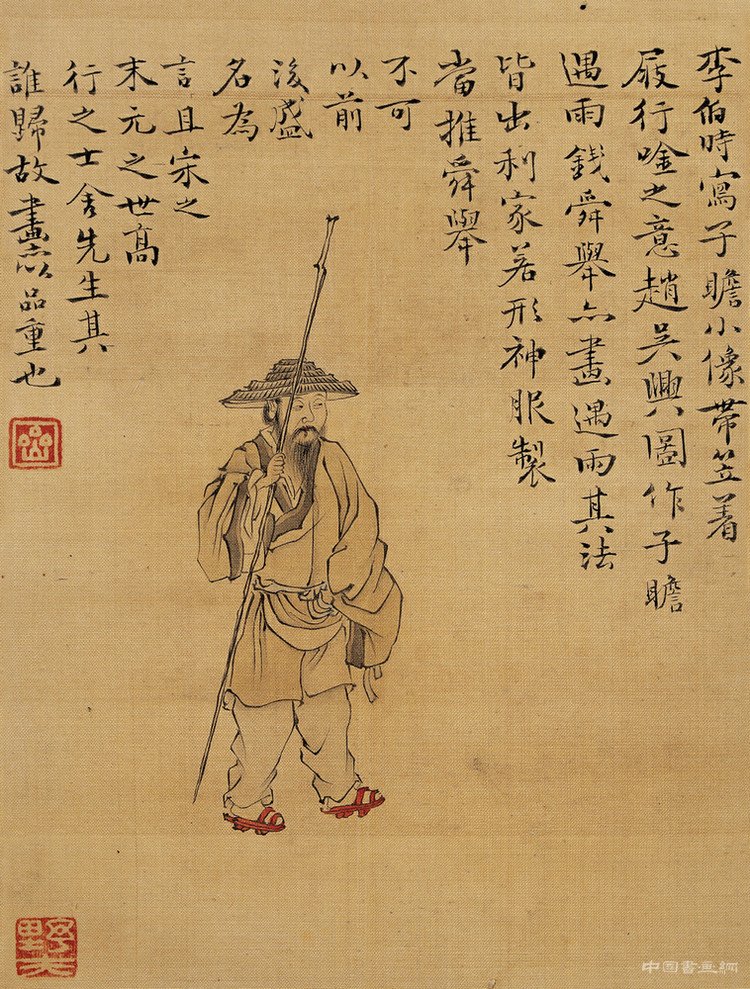 李伯時寫子瞻小像帶笠着
屐行唫之意趙吳興圖作子瞻
遇雨錢舜舉亦畫遇雨其法
皆出利家若形神服製
當推舜舉
不可
以前
後盛
名為
言且宋之
末元之世高
行之士舍先生其
誰歸故畫亦以品重也
中国書画網